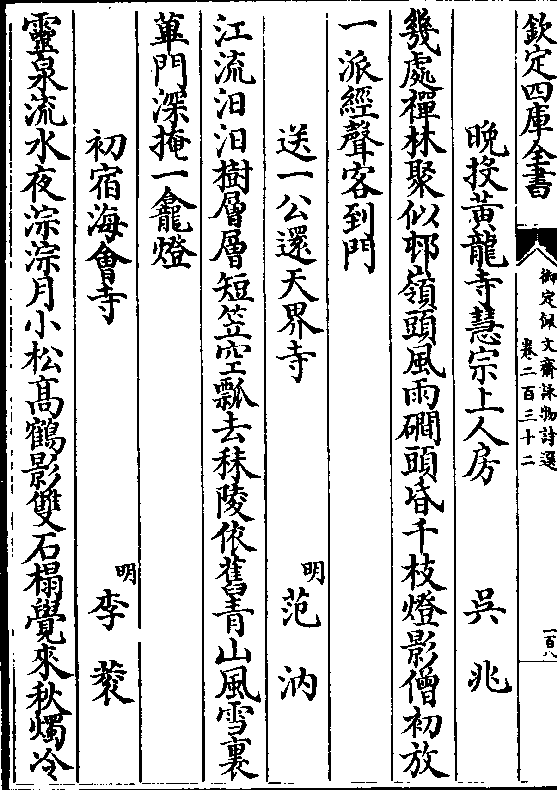 欽定四庫全書
御定佩文齋詠物詩選
卷二百三十二
一百八
晩投黃龍寺慧宗上人房 吳兆
幾處禪林聚似邨嶺頭風雨磵頭昏千枝燈影僧初放
一派經聲客到門
送一公還天界寺 明 范汭
江流汨汨樹層層短笠空瓢去秣陵依舊青山風雪裏
蓽門深掩一龕燈
初宿海會寺 明 李袠
靈泉流水夜淙淙月小松髙鶴影雙石榻覺來秋燭冷